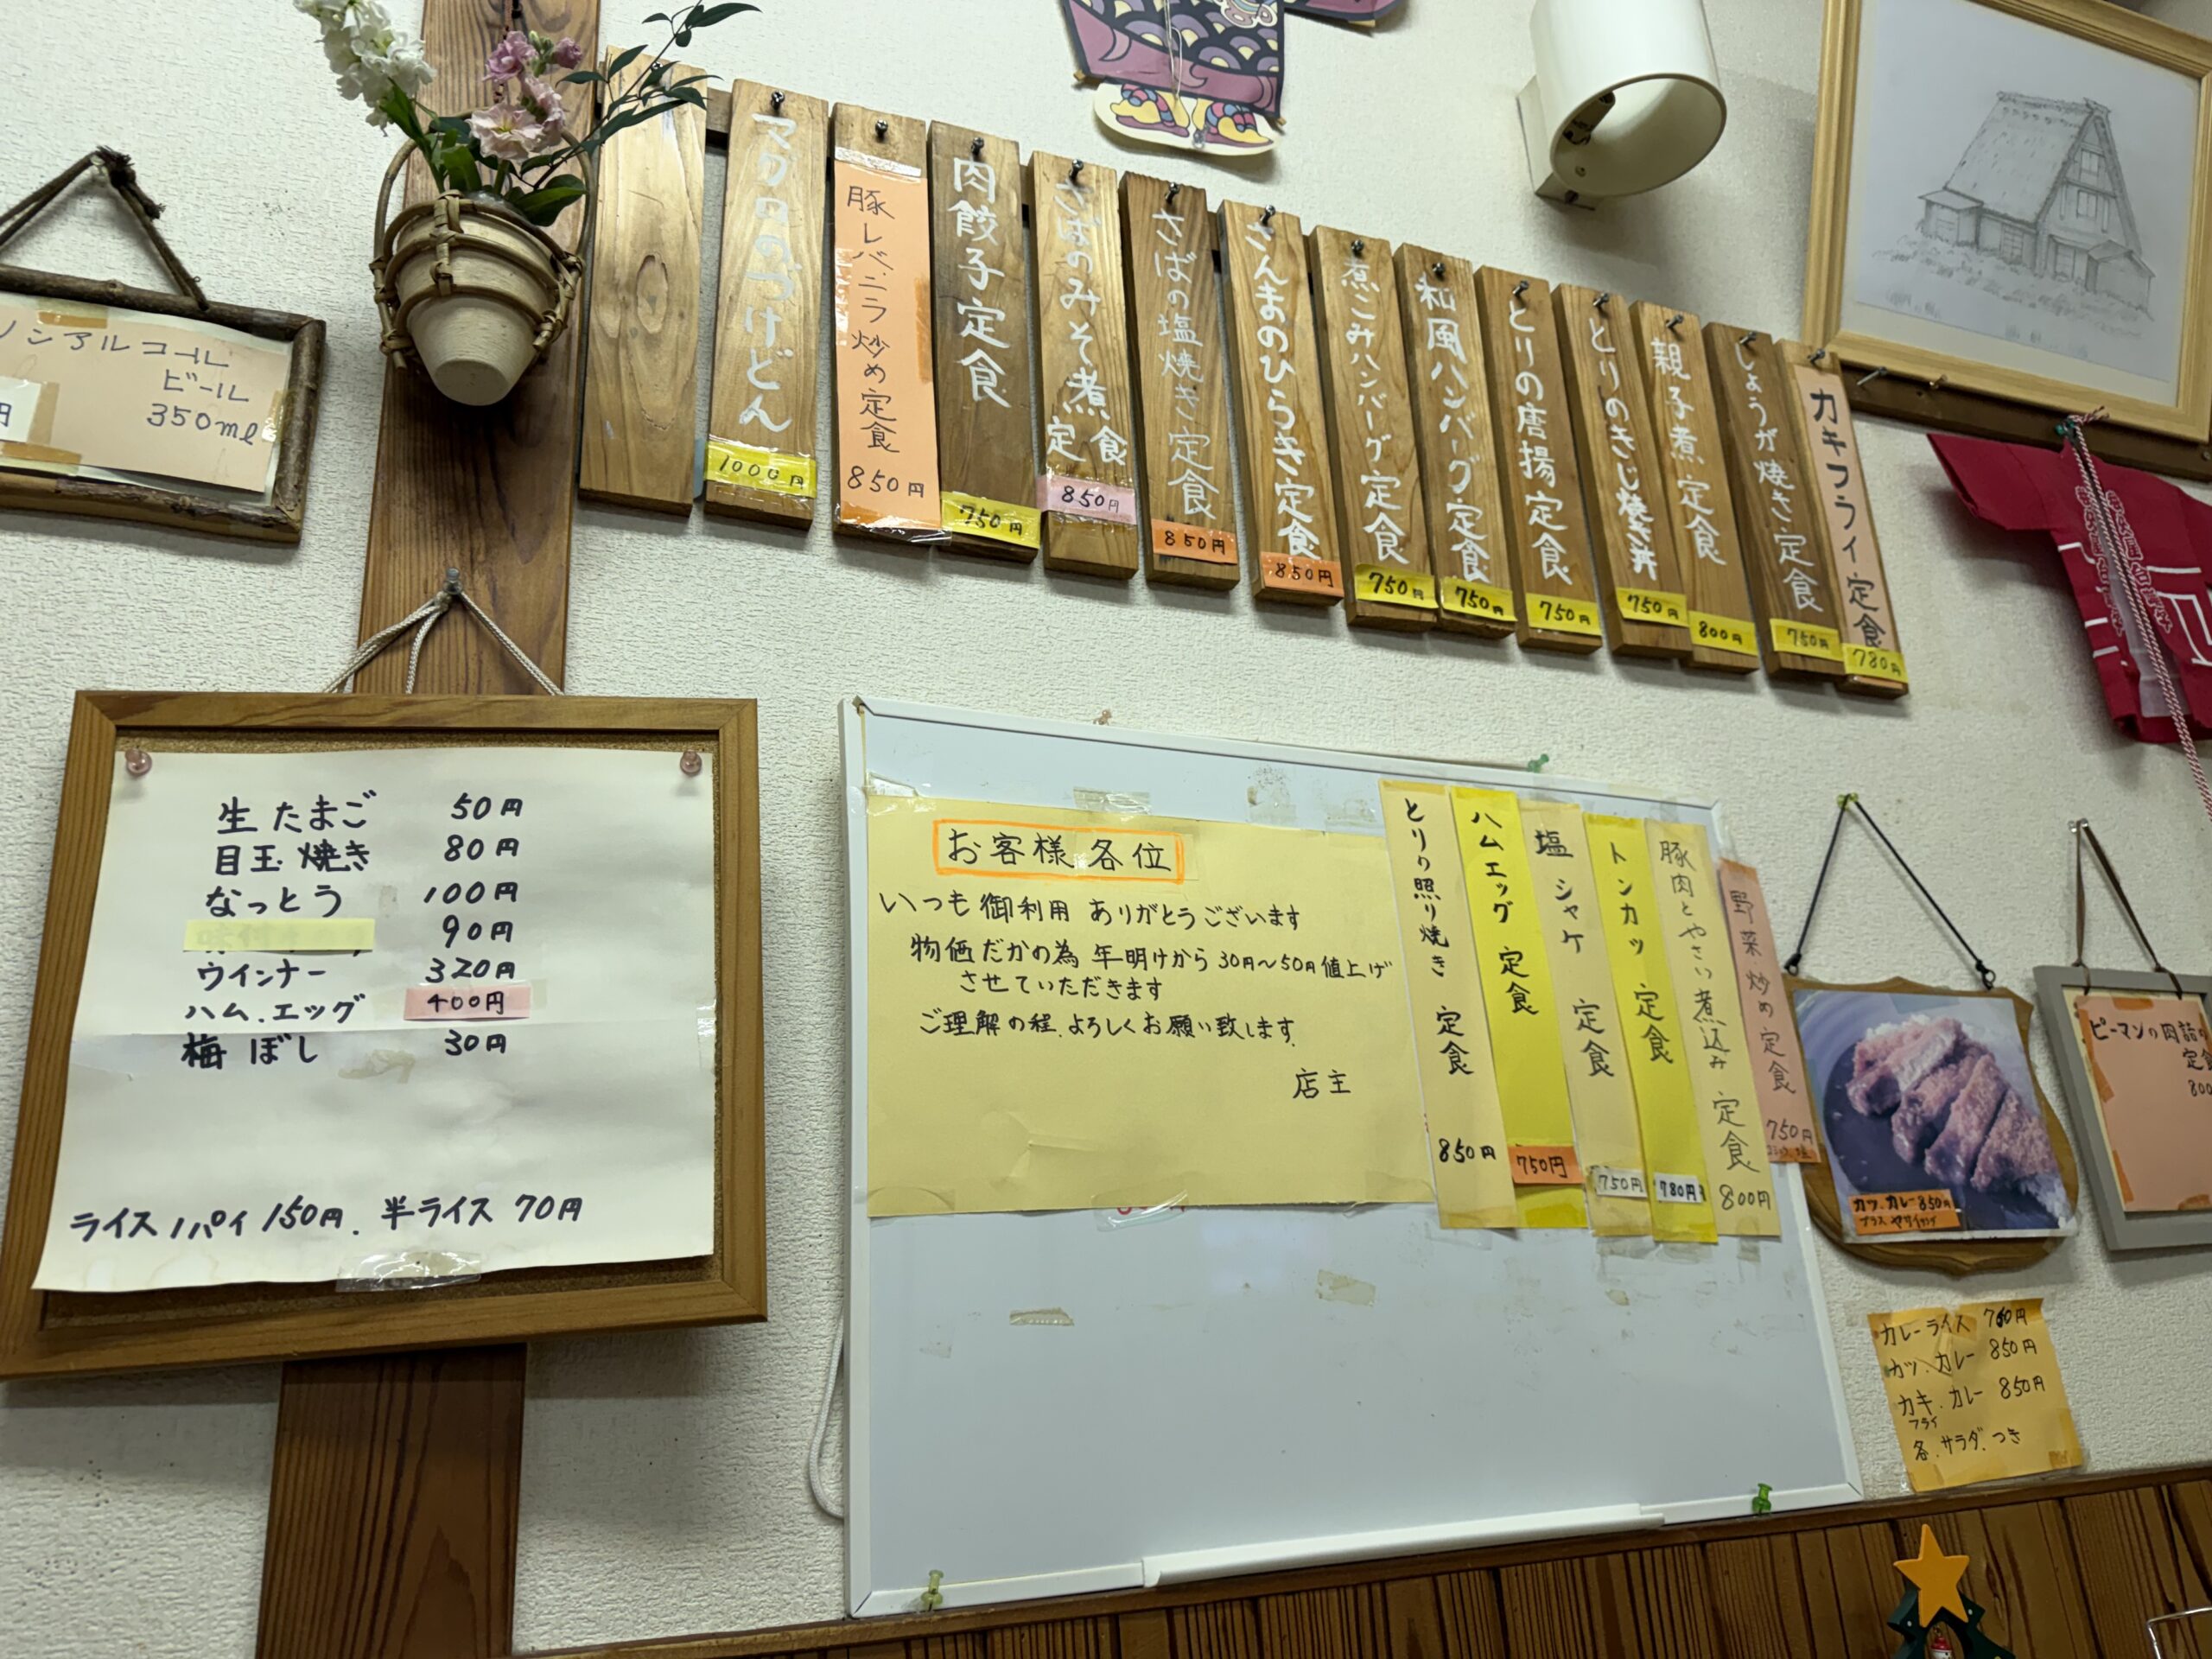 ノンアルコール
ビール
350ml
円
マグロのづけどん
1000円
豚レバニラ炒め定食
850円
肉餃子定食
750円
さばのみそ煮定食
850円
さばの塩焼き定食
850円
さんまのひらき定食
850円
煮こみハンバーグ定食
750円
和風ハンバーグ定食
750円
とりの唐揚定食
750円
とりのきじ焼き丼
750円
親子煮定食
800円
しょうが焼き定食
750円
カキフライ定食
780円
生たまご 50円
目玉焼き 80円
なっとう 100円
90円
ウインナー 320円
ハム.エッグ 400円
梅ぼし 30円
ライス1パイ 150円. 半ライス 70円
お客様各位
いつも御利用 ありがとうございます
物価だかの為 年明けから 30円〜50円値上げ
させていただきます
ご理解の程、よろしくお願い致します。
店主
とりの照り焼き 定食
850円
ハムエッグ 定食
750円
塩シャケ 定食
750円
トンカツ 定食
780円
豚肉とやさい煮込み 定食
800円
野菜炒め定食
750円
カツ.カレー850円
プラス
ピーマンの肉詰
定食
800
カレーライス 750円
カツ.カレー 850円
カキ.カレー 850円
フライ
各.サラダ.つき